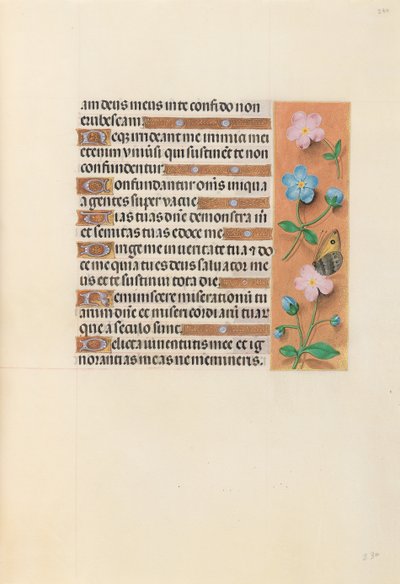 am deus meus in te confido non
erubescam
Neq; irrideant me inimici mei
etenim universi qui sustinēt te non
confundentur
Confundantur om̄s iniqua
agentes supervacue
Vias tuas dn̄e demonstra m̄
et semitas tuas edoce me
Dirige me in veritate tua ⁊ do
ce me quia tu es deus salvator me
us et te sustinui tota die
Reminiscere miserationū tu
arum dn̄e et misericordiarū tuar
que a seculo sunt
Delicta iuventutis mee et ig
norantias meas ne memineris.
230